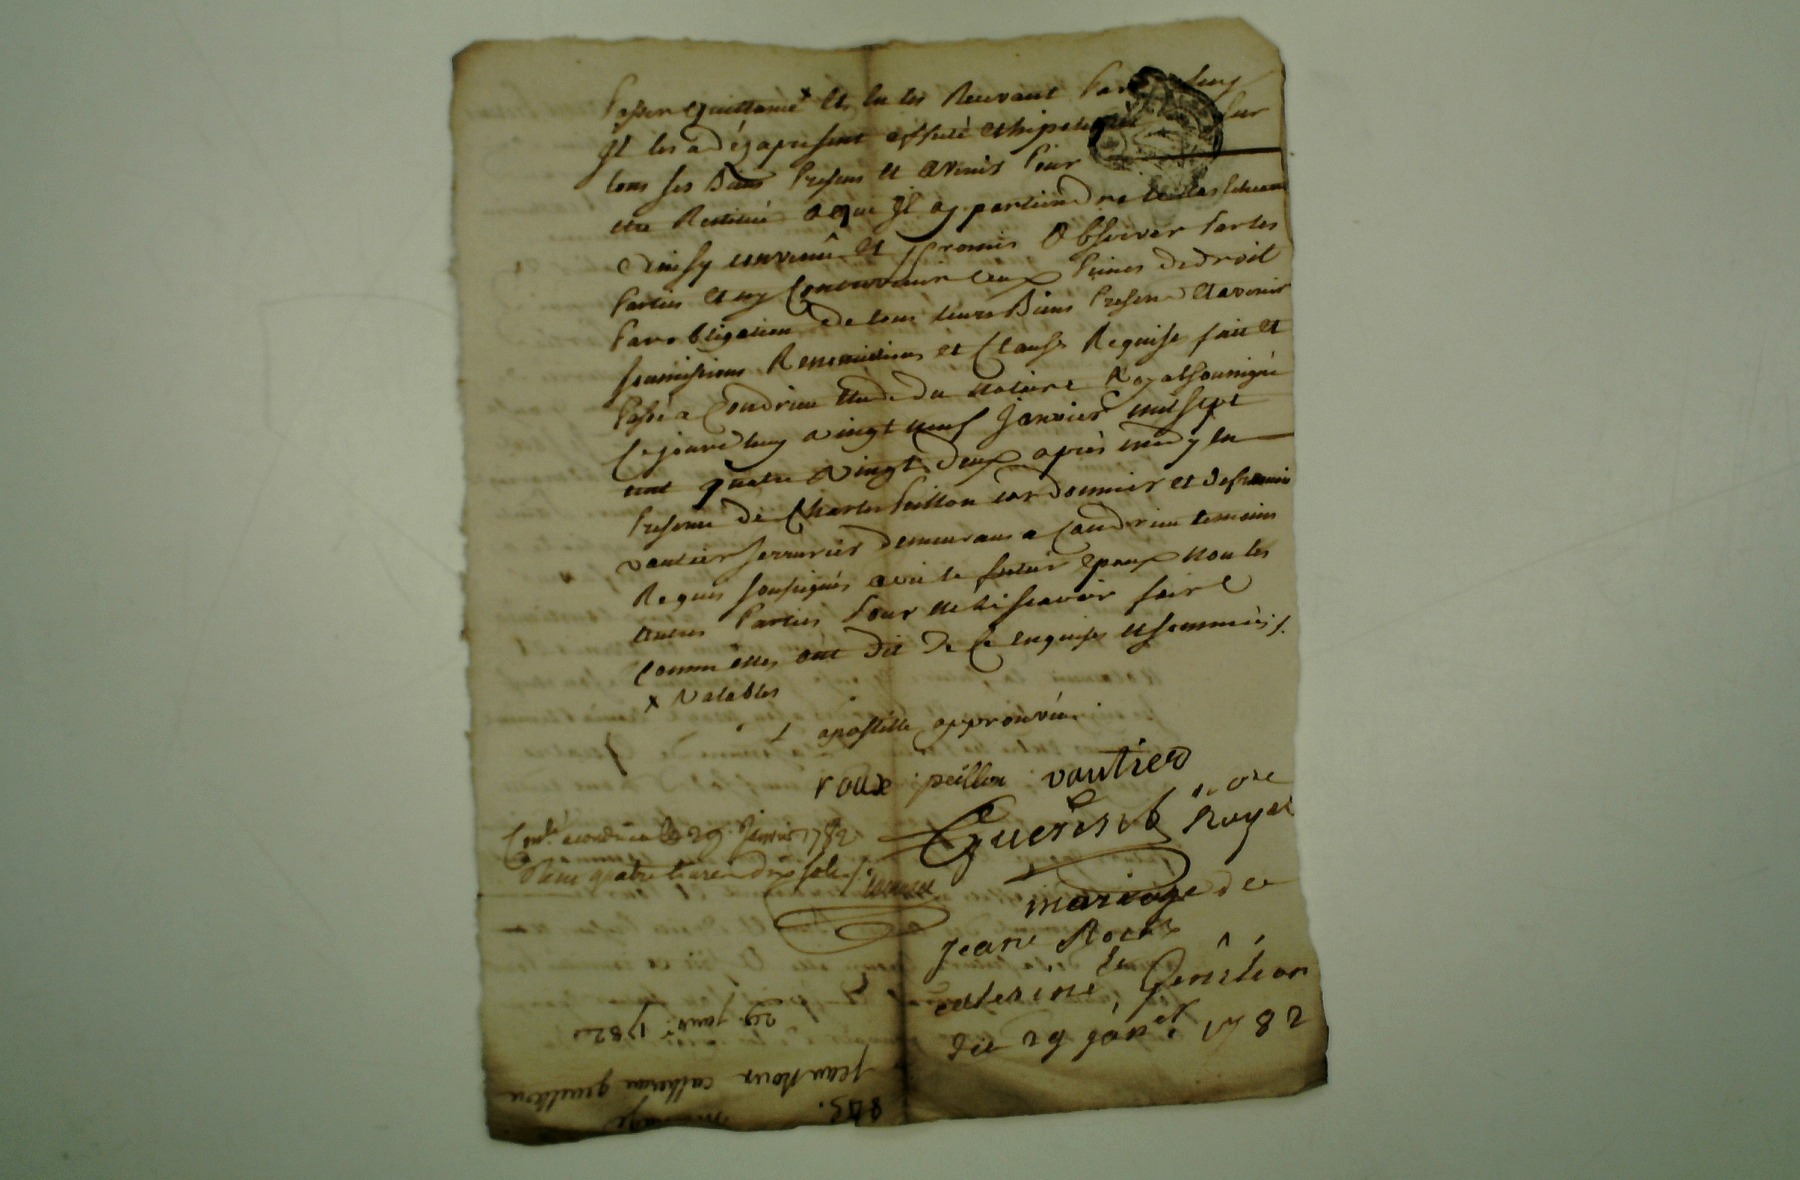 Passer quittance x Et en les Recevant Par luy
Il les a dés apresent assuré et hipotequé sur
tous ses Biens Presens et avenir Pour
etre Restitué a que Il appartiendra
Ainsy convenû et promis Observer Par les
Parties et ny Contrevenir aux Peines de droit
Par obligation de tous leurs Biens Presens et avenir
soumissions Renonciations et Clauses Requises fait et
Passé a Condrieu Etude du Notaire Royal soussigné
Cejourdhuy vingt neuf Janvier mil sept
cent quatre vingt deux après midy en
Presence de Charles Peillon cordonnier et de
vautier serrurier demeurans a Condrieu temoins
Requis soussignés avec le futur Epoux non les
autres Parties Pour ne le sçavoir faire
Comme elles ont dit de Ce enquises et sommées ./.
x Valables
apostille approuvée
roux peillon vautier
Guerin Nore Royal
Conlé a condrieu le 29 Janvier 1782
Reçu quatre livres dix sols
mariage de
jean Roux
et
caterine Genthon
du 29 janer 1782
29 janv. 1782
jean Roux catherine
843.
mariage